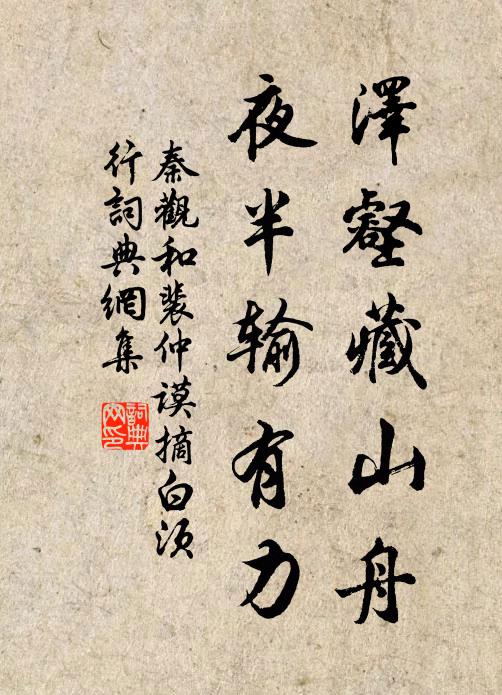 澤壑藏山舟
夜半输有力
秦觀和裴仲謨摘白须
行詞典網集
詞典
网印